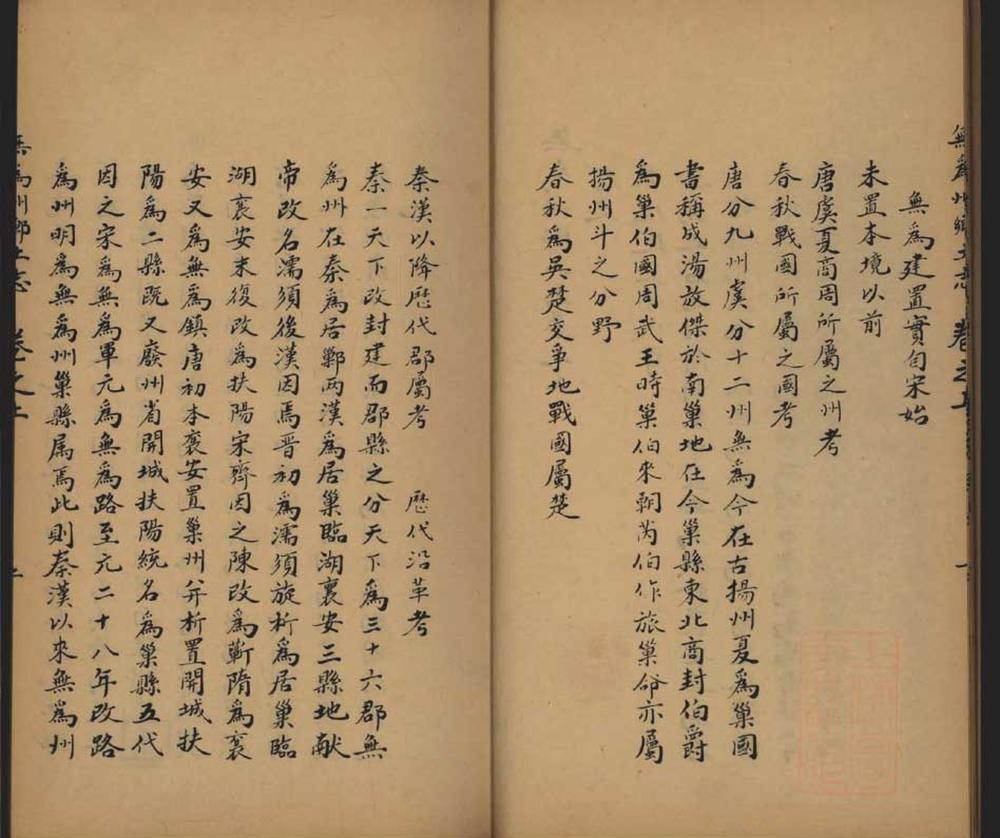 無為州鄉土志 卷之上
無為建置實自宋始
未置本境以前
唐虞夏商周所屬之州考
春秋戰國所屬之國考
唐分九州虞分十二州無為今在古揚州夏為巢國
書稱成湯放傑於南巢地在今巢縣東北商封伯爵
為巢伯國周武王時巢伯來朝芮伯作旅巢命亦屬
揚州斗之分野
春秋為吳楚交爭地戰國屬楚
秦漢以降歷代郡屬考 歷代沿革考
秦一天下改封建而郡縣之分天下為三十六郡無
為州在秦為居鄛两漢為居巢臨湖襄安三縣地献
帝改名濡須後漢因焉晋初為濡須旋析為居巢臨
湖襄安末復改為扶陽宋齊因之陳改為蘄隋為襄
安又為無為鎮唐初本襄安置巢州并析置開城扶
陽為二縣既又廢州省開城扶陽統名為巢縣五代
因之宋為無為軍元為無為路至元二十八年改路
為州明為無為州巢縣属焉此則秦漢以來無為州
無為州鄉土志 卷之上